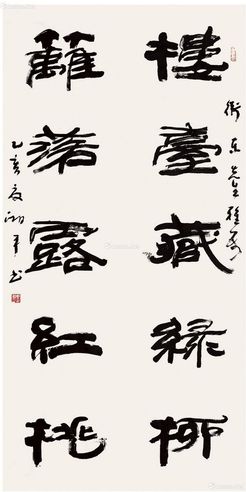 樓臺藏綠柳
籬落露紅桃
衛東先生雅屬
乙亥夏湖平書